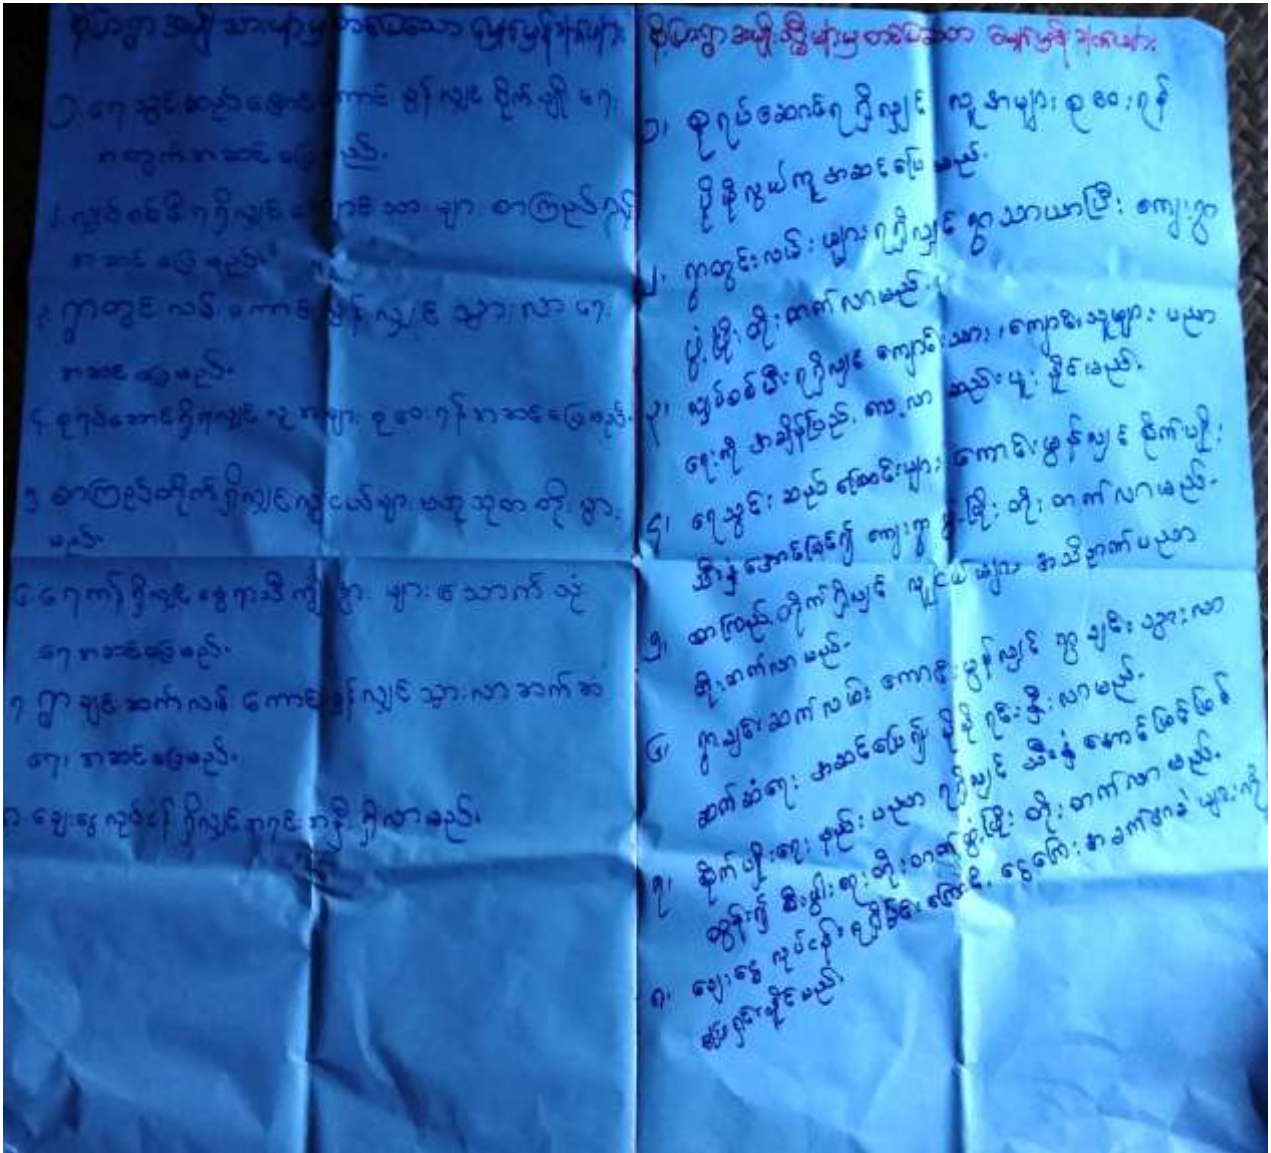 စိုပြာရွာ အမျိုးသားများမှ တင်ပြသော မျှော်မှန်းချက်များ
၁. ရေသွင်းဆည်မြောင်းကောင်းမွန်လျှင် စိုက်ပျိုးရေး
အတွက် အဆင်ပြေမည်.
၂. လျှပ်စစ်မီးရရှိလျှင် ကျောင်းသားများ စာကြည့်ရန်
အဆင်ပြေမည်.
၃. ရွာတွင်းလမ်းကောင်းမွန်လျှင် သွားလာရေး
အဆင်ပြေမည်.
၄. စုရပ်ဆောင်ရှိရလျှင် လူအများ စုဝေးရန် အဆင်ပြေမည်.
၅. စာကြည့်တိုက်ရှိလျှင် လူငယ်များ ဗဟုသုတ တိုးပွား
မည်.
၆. ရေကန်ရှိလျှင် နွေရာသီ ကျွဲနွားများ သောက်သုံး
ရေ အဆင်ပြေမည်.
၇. ရွာချင်းဆက်လမ်း ကောင်းမွန်လျှင် သွားလာဆက်ဆံ
ရေး အဆင်ပြေမည်.
၈. ချေးငွေလုပ်ငန်းရှိလျှင် အရင်းအနှီး ရှိလာမည်.
စိုပြာရွာ အမျိုးသမီးများမှ တင်ပြသော မျှော်မှန်းချက်များ
၁၊ စုရပ်ဆောင်ရရှိလျှင် လူအများ စုဝေးရန်
ပိုမိုလွယ်ကူအဆင်ပြေမည်.
၂၊ ရွာတွင်းလမ်းများရရှိလျှင် ရွာသာယာပြီး ကျေးရွာ
ဖွံ့ဖြိုးတိုးတက်လာမည်.
၃၊ လျှပ်စစ်မီးရရှိလျှင် ကျောင်းသား၊ကျောင်းသူများ ပညာ
ရေးကို အချိန်ပြည့် လေ့လာဆည်းပူးနိုင်မည်.
၄၊ ရေသွင်းဆည်မြောင်းများ ကောင်းမွန်လျှင် စိုက်ပျိုး
သီးနှံအောင်မြင်၍ ကျေးရွာဖွံ့ဖြိုးတိုးတက်လာမည်.
၅၊ စာကြည့်တိုက်ရှိလျှင် လူငယ်များ အသိဉာဏ်ပညာ
တိုးတက်လာမည်.
၆၊ ရွာချင်းဆက်လမ်း ကောင်းမွန်လျှင် ရွာချင်းသွားလာ
ဆက်ဆံရေး အဆင်ပြေ၍ ပိုမိုရင်းနှီးလာမည်.
၇၊ စိုက်ပျိုးရေးနည်းပညာရရှိလျှင် သီးနှံအောင်မြင်ဖြစ်
ထွန်း၍ စီးပွါးရေးတိုးတက်ဖွံ့ဖြိုးတိုးတက်လာမည်.
၈၊ ချေးငွေလုပ်ငန်းရရှိခြင်းကြောင့် ငွေကြေးအခက်အခဲများကို
ဖြေရှင်းနိုင်မည်.